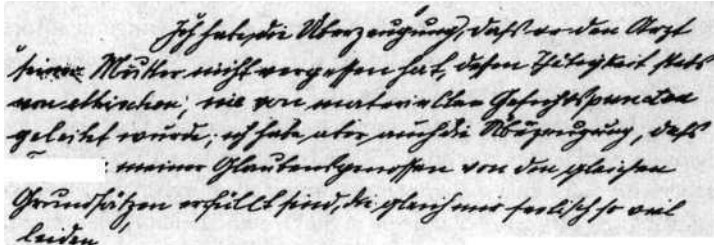 Ich habe die Überzeugung, daß er den Arzt
seiner Mutter nicht vergessen hat, dessen Tätigkeit stets
von ethischen, nie von materiellen Gesichtspuncten
geleitet wurde; ich habe aber auch die Überzeugung, daß
meiner Glaubensgenossen von den gleichen
Grundsätzen erfüllt sind, die gleich mir seelisch so viel
leiden